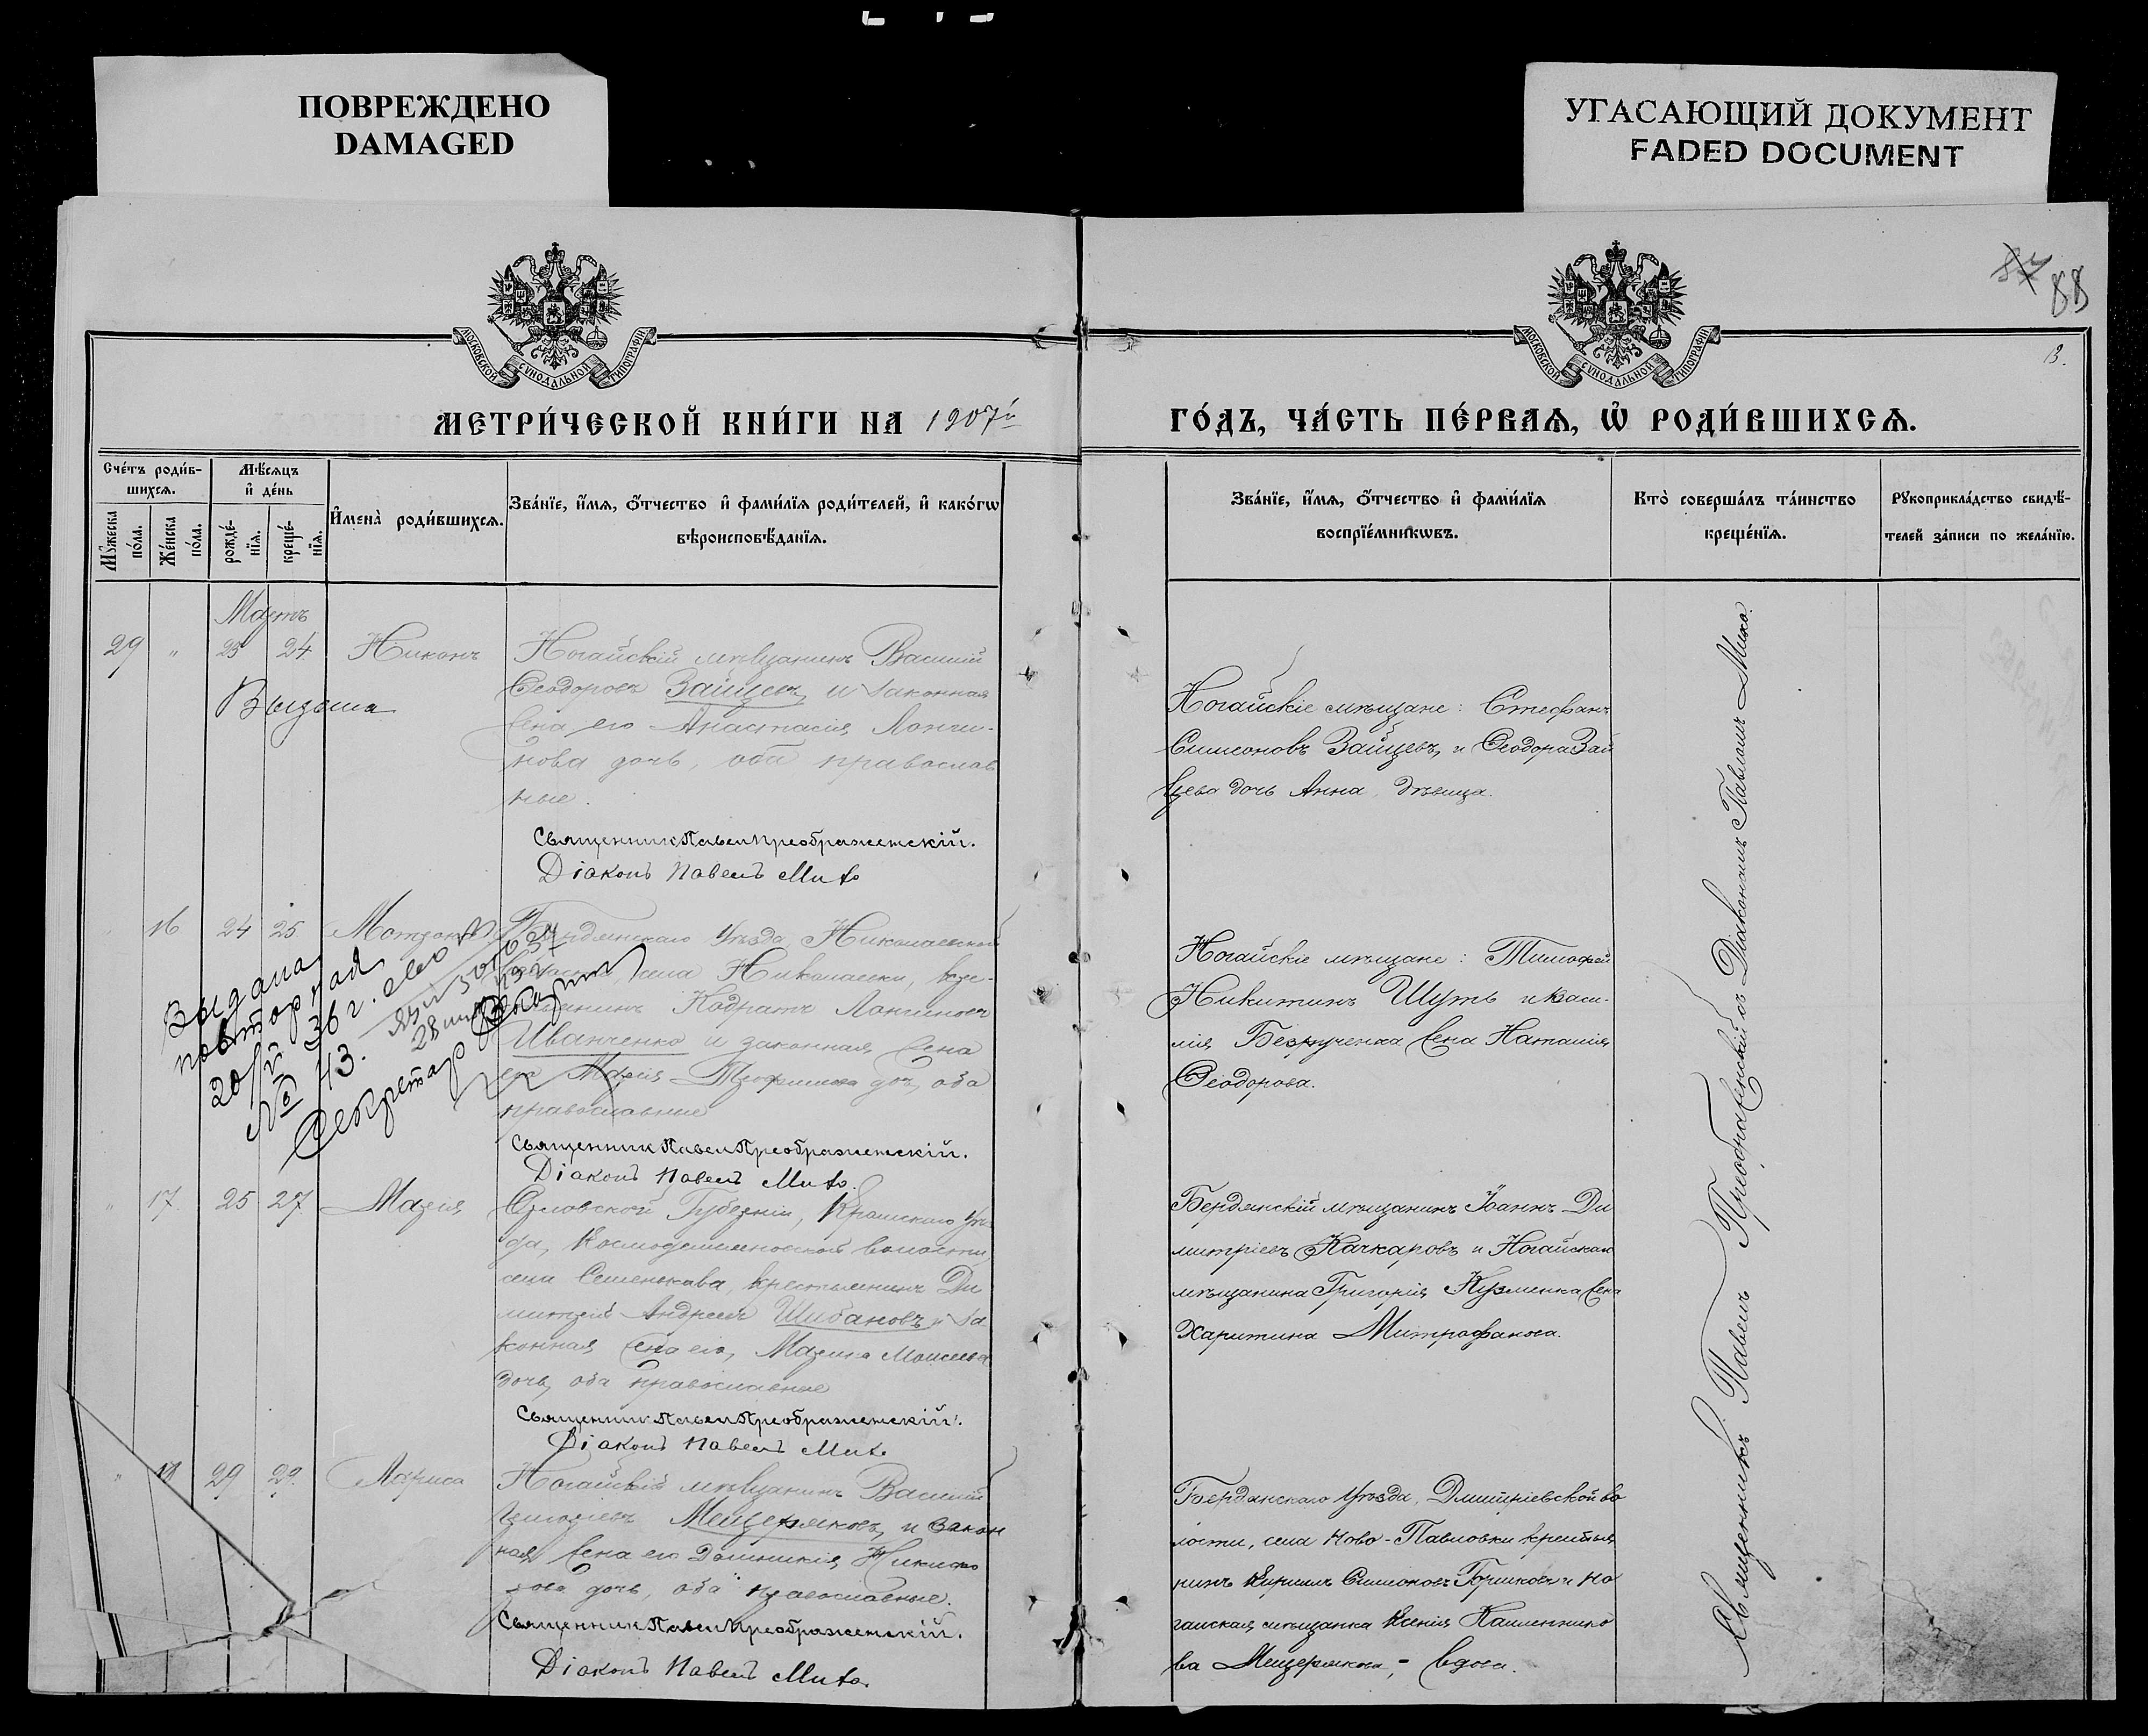 ПОВРЕЖДЕНО
DAMAGED
УГАСАЮЩИЙ ДОКУМЕНТ
FADED DOCUMENT
87 88
13.
МОСКОВСКОЙ СѴНОДАЛЬНОЙ ТИПОГРАФІИ
МОСКОВСКОЙ СѴНОДАЛЬНОЙ ТИПОГРАФІИ
МЕТРИ́ЧЕСКОЙ КНИ́ГИ НА 1907й
ГО́ДЪ, ЧА́СТЬ ПЕ́РВАѦ, Ѡ РОДИ́ВШИХСѦ.
Сче́тъ роди́в-
шихсѧ.
Мꙋ́жеска
по́ла.
Же́нска
по́ла.
Мѣ́сѧцъ
и҆ де́нь
рожде́-
нїѧ.
креще́-
нїѧ.
И҆мена̀ роди́вшихсѧ.
Зва́нїе, и҆́мѧ, ѻ҆́тчество и҆ фами́лїѧ роди́телей, и҆ како́гѡ
вѣроисповѣ́данїѧ.
Зва́нїе, и҆́мѧ, ѻ҆́тчество и҆ фами́лїѧ
воспрїе́мникѡвъ.
Кто̀ соверша́лъ та́инство
креще́нїѧ.
Рꙋкоприкла́дство свидѣ́-
телей за́писи по жела́нїю.
Мартъ
29 " 23 24 Никонъ
Выдана
Ногайскій мѣщанинъ Василій
Ѳеодоровъ Зайцевъ, и законная
жена его Анастасія Лонги-
нова дочь, оба православ
ные.
Священник Павел Преображенскій.
Діаконъ Павелъ Мико
Ногайскіе мѣщане: Стефанъ
Симеоновъ Зайцевъ, и Ѳеодора Зай
цева дочь Анна дѣвица.
" 16 24 25 Матрона
Бердянскаго уѣзда, Николаевской
волости, села Николаевки, кре-
стьянинъ Кодратъ Лонгиновъ
Иванченко и законная жена
его Марія Трофимова дочь, оба
православные
Священник Павел Преображенскій.
Діаконъ Павелъ Мико.
Выдана
повторная
20/VI 36 г.
№ 43.
Секретар
Ногайскіе мѣщане: Тимофей
Никитинъ Шуть и Васи-
лія Безрученка жена Наталія
Ѳеодорова.
" 17. 25 27 Марія
Орловской Губерніи, Кромскаго уѣз
да, Космодемьяновской волости,
села Семенькава, крестьянинъ Ди
митрій Андреевъ Шибановъ и за
конная жена его, Марина Моисеева
дочь, оба православные
Священник Павел Преображенскій.
Діаконъ Павелъ Мико
Бердянскій мѣщанинъ Іоаннъ Ди
митріевъ Качкаровъ и Ногайскаго
мѣщанина Григорія Кузменка жена
Харитина Митрофанова.
" 18 29 29. Лариса
Ногайскій мѣщанинъ Василій
Мещеряковъ, и закон
ная жена его Домникія Никифо
рова дочь, оба православные.
Священник Павел Преображенскій.
Діаконъ Павелъ Мико.
Бердянскаго уѣзда, Дмитріевской во
лости, села Ново-Павловки крестья
нинъ Кириллъ Симоновъ Горшковъ и Но
гайская мѣщанка Ксенія Каллиннико
ва Мещерякова, - вдова.
Священникъ Павелъ Преображенскій съ Діакономъ Павломъ Мико.